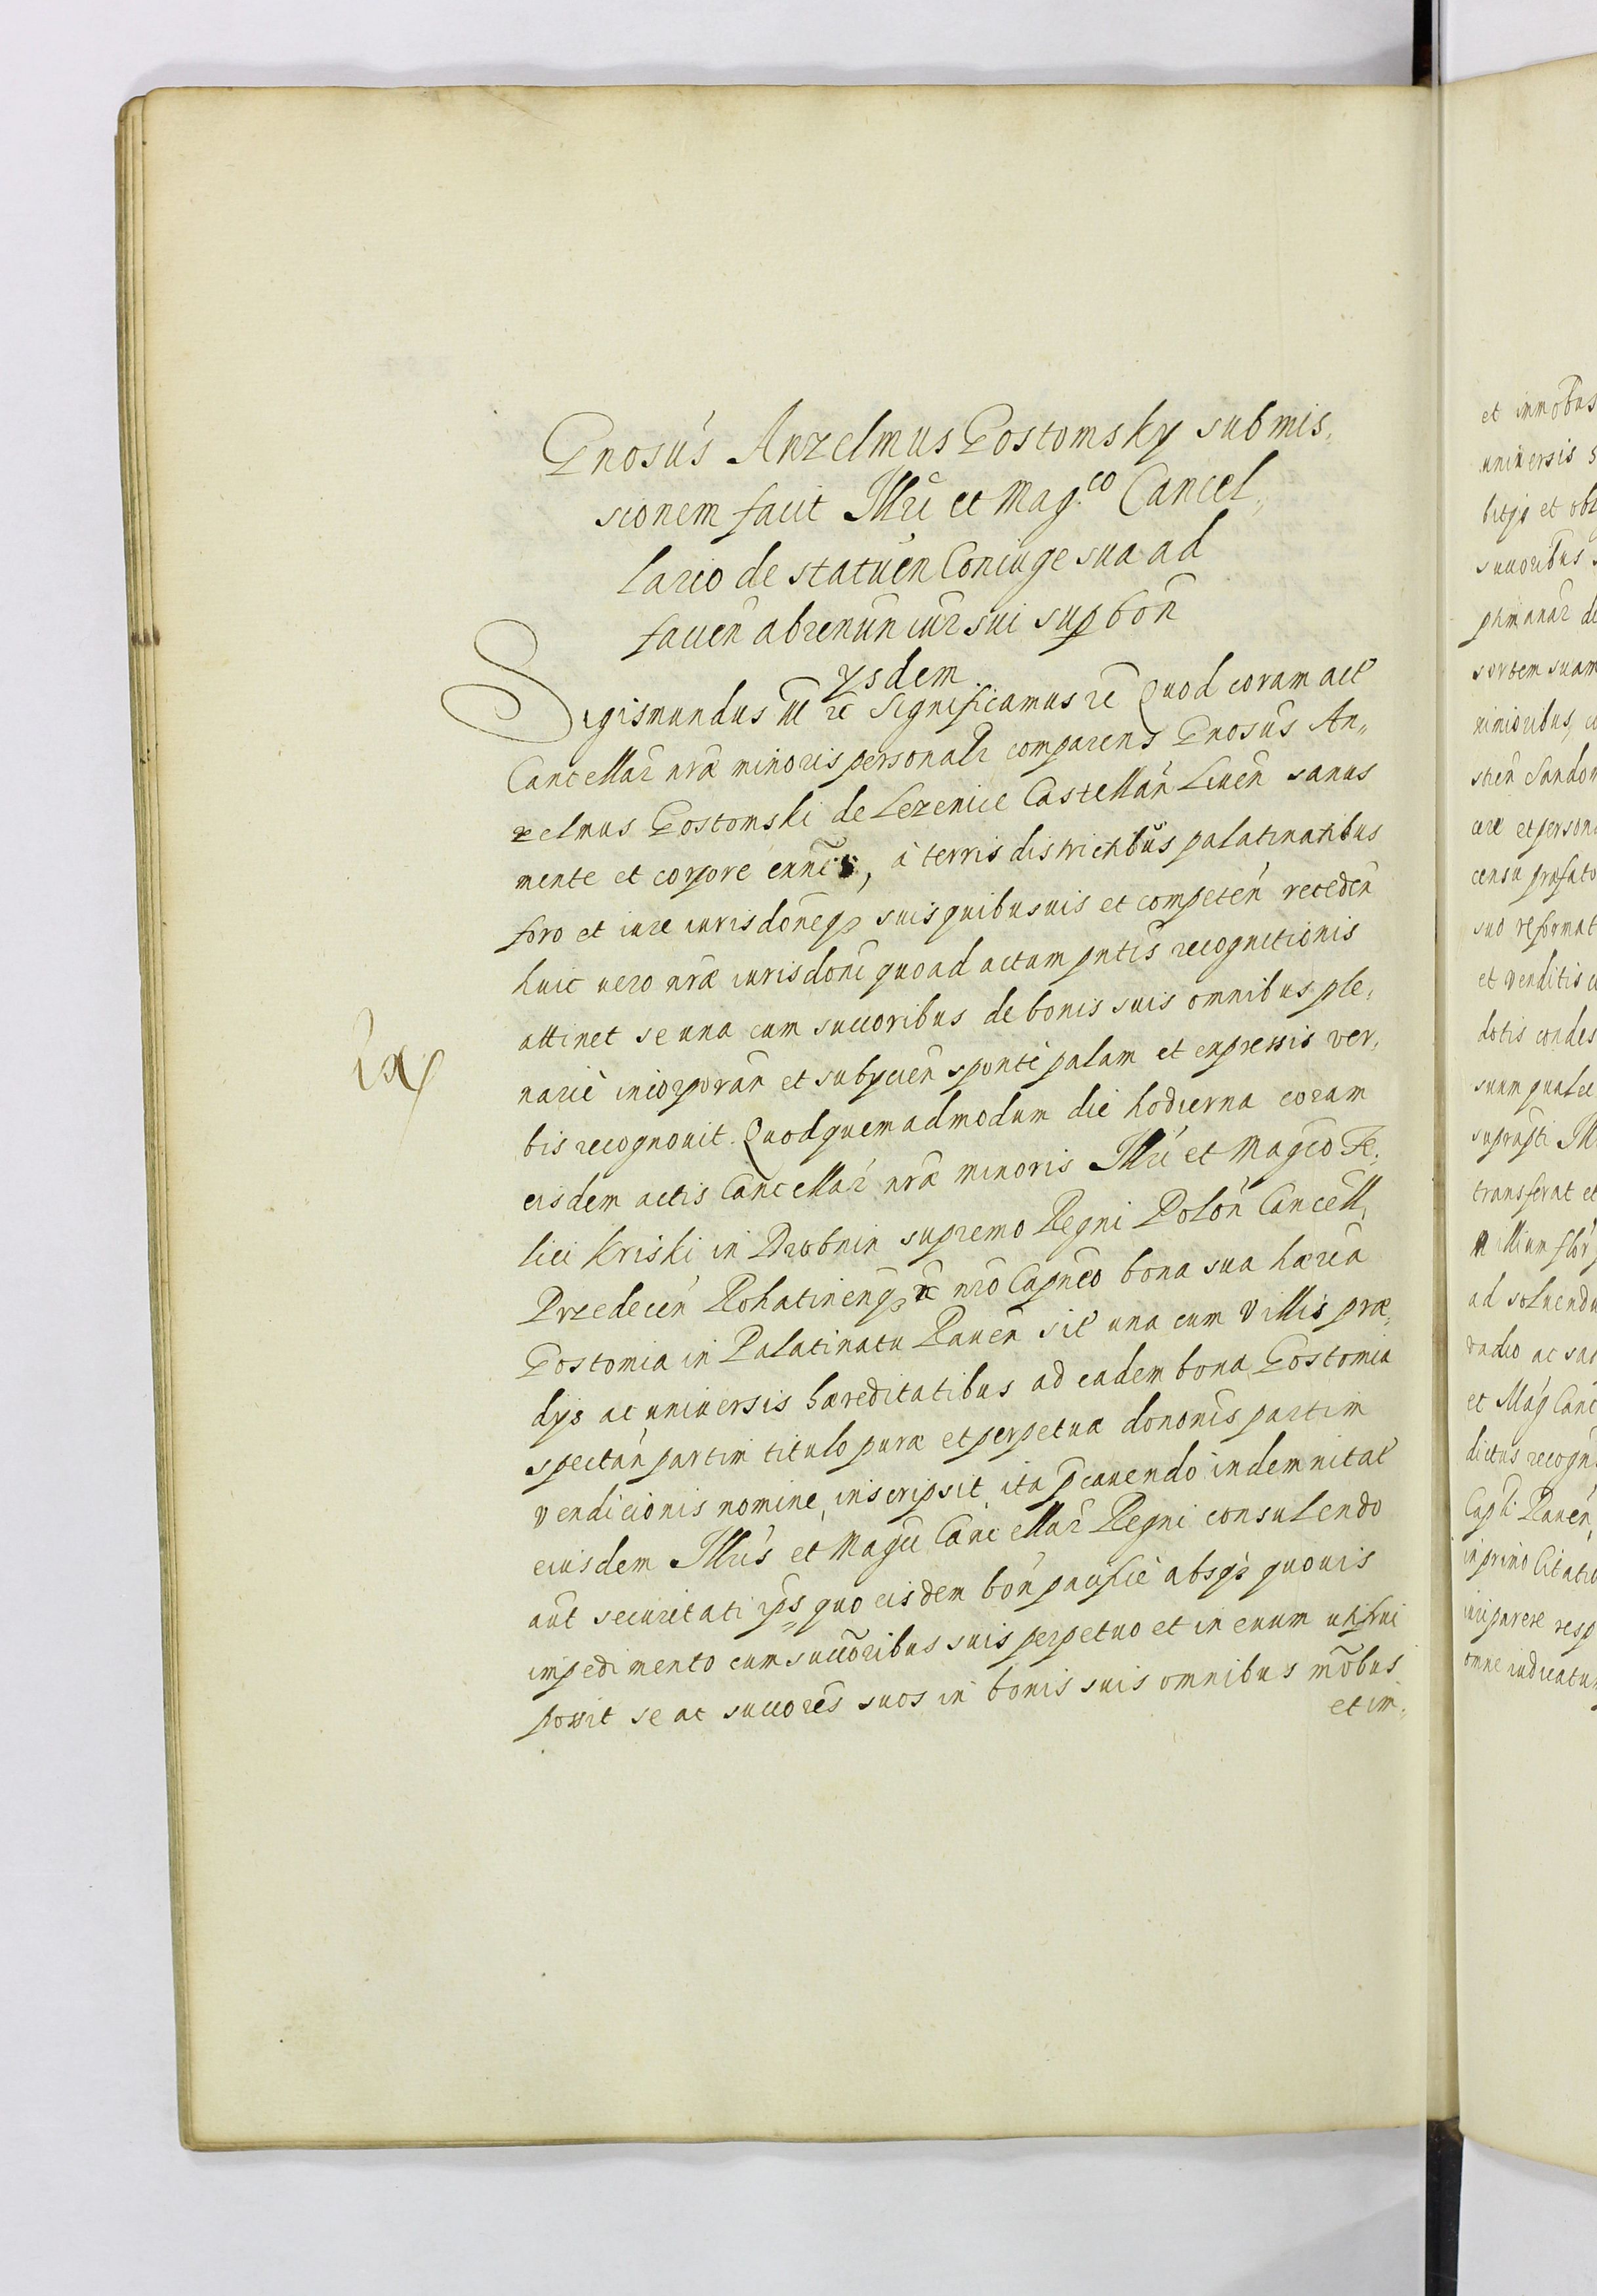 Gnosus Anzelmus Gostomsky submis,
sionem facit Illri et Mag.co Cancel,,
lario de statuen Coniuge sua ad
facien abrenun iur sui sup bon
ysdem
Sigismundus III rc Significamus rc Quod coram act
Cancellar nrae minoris personalr comparens Gnosus An,,
zelmus Gostomski de Lezenice Castellan Liven sanus
mente et corpore enns, à terris districtibus palatinatibus
foro et iure iurisdoneq suis quibusuis et competen receden
huic uero nrae iurisdoni quoad actum pntis recognitionis
attinet se una cum succoribus de bonis suis omnibus ple,
nariè incorporan et subycien spontè palam et expressis ver,
bis recognouit. Quod quemadmodum die hodierna coram
eisdem actis Cancellar nrae minoris Illri et Magco Fe,
lici Kriski in Drobnin supremo Regni Polon Cancell,
Przedecen Rohatinenq rc nro Capneo bona sua haeria
Gostomia in Palatinatu Raven sit una cum Villis prae,
dys ac uniuersis haereditatibus ad eadem bona Gostomia
spectan partim titulo purae et perpetuae dononis partim
vendicionis nomine inscripsit, ita pcauendo indemnitat
eiusdem Illris et Magci Cancellar Regni consulendo
aut securitati ips, quo eisdem bon pacificè absq quouis
impedimento cum succoribus suis perpetuo et in euum utifrui
possit se ac succores suos in bonis suis omnibus mobus
et im,
et immobus
uniuersis s
bitis et obl
succoribus
sortem suam
censu praefato
suo reformat
et venditis
dotis condes
transferat et
ad soluendu
vadio ac sa
et Mag Canc
dictus recogn
Capli Raven
in primo Citatio
parere resp
omne iudicatum